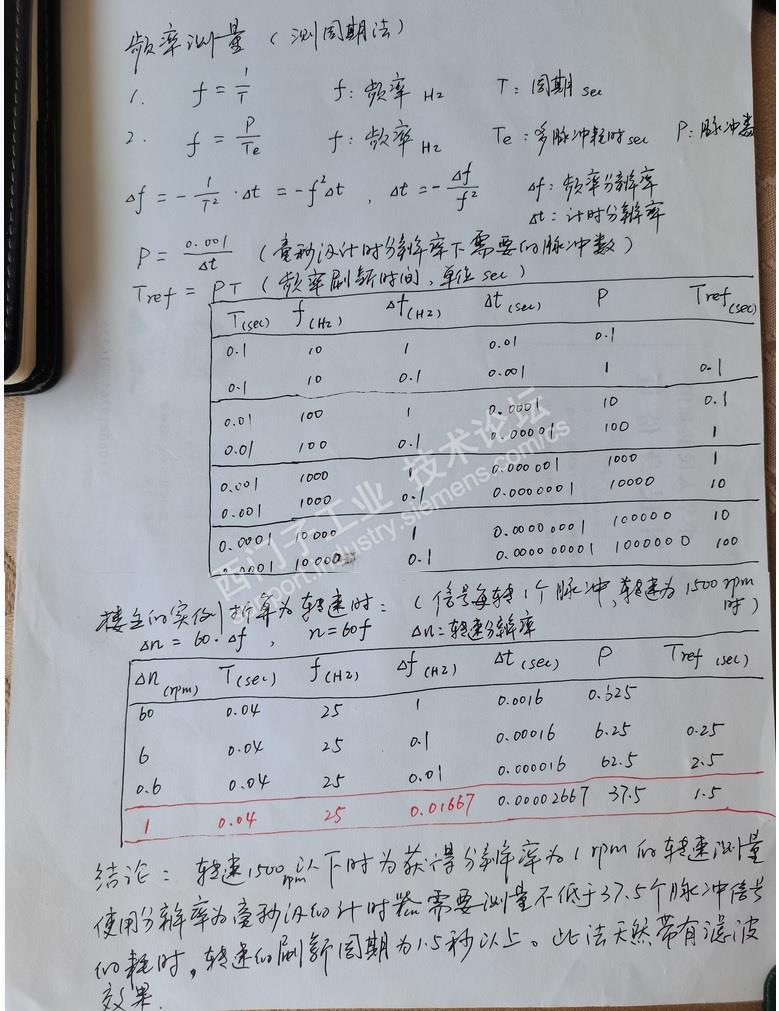 频率测量（测周期法）
1. f = 1/T f: 频率 Hz T: 周期 sec
2. f = P/Te f: 频率 Hz Te: 多脉冲耗时 sec P: 脉冲数
Δf = - 1/T² · Δt = -f²Δt , Δt = - Δf/f² Δf: 频率分辨率
Δt: 计时分辨率
P = 0.001/Δt （毫秒级计时分辨率下需要的脉冲数）
Tref = PT （频率刷新时间，单位 sec）
T(sec) f(Hz) Δf(Hz) Δt(sec) P Tref(sec)
0.1 10 1 0.01 0.1
0.1 10 0.1 0.001 1 0.1
0.01 100 1 0.0001 10 0.1
0.01 100 0.1 0.00001 100 1
0.001 1000 1 0.000001 1000 1
0.001 1000 0.1 0.0000001 10000 10
0.0001 10000 1 0.00000001 100000 10
0.0001 10000 0.1 0.000000001 1000000 100
西门子工业 技术论坛
support.industry.siemens.com/cs
楼主的实例折算为转速时：（信号每转1个脉冲，转速为1500rpm时）
Δn = 60·Δf , n=60f Δn: 转速分辨率
Δn(rpm) T(sec) f(Hz) Δf(Hz) Δt(sec) P Tref(sec)
60 0.04 25 1 0.0016 0.325
6 0.04 25 0.1 0.00016 6.25 0.25
0.6 0.04 25 0.01 0.000016 62.5 2.5
1 0.04 25 0.01667 0.00002667 37.5 1.5
结论：转速1500rpm以下时为获得分辨率为1rpm的转速测量
使用分辨率为毫秒级的计时 需要测量不低于37.5个脉冲信号
的耗时，转速的刷新周期为1.5秒以上。此法天然带有滤波
效果.